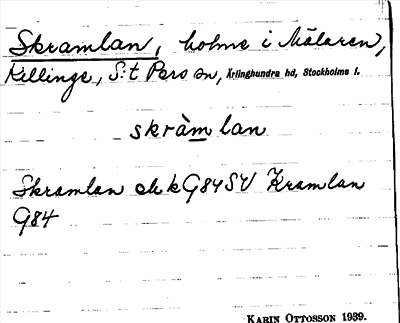 Skramlan, holme i Mälaren,
Killinge, S:t Pers sn, Ärlinghundra hd, Stockholms l.
skràmlan
Skramlan ek kG84SV Kramlan
G84
KARIN OTTOSSON 1939.